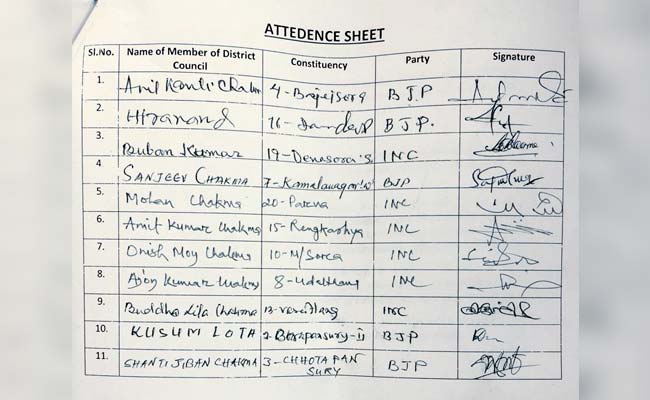 ATTEDENCE SHEET
Sl.No. Name of Member of District Council Constituency Party Signature
1. Amit Kanti 4- BJP
2. Hiranand 16- BJP.
3. Buban Kumar 19- INC
4 SANJEEV CHAKMA 7-Kamalanagar BJP
5. Mohan Chakma 20- INC
6. Amit Kumar Chakma 15-Rengkashya INC
7. Onish Moy Chakma 10-M/Sorca INC
8. Ajoy Kumar 8- INC
9. Buddha Lila Chakma 13- INC
10. KUSHM LOTA 2- BJP
11. SHANTI JIBAN CHAKMA 3-CHHOTA PAN SURY BJP